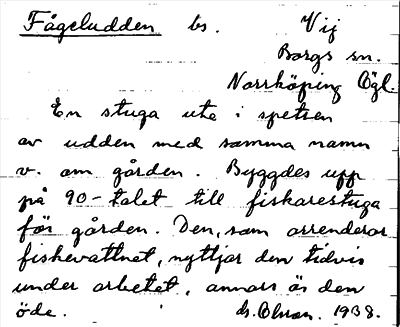 Fågeludden bs. Vij
Borgs sn.
Norrköping Ögl.
En stuga ute i spetsen
av udden med samma namn
v. om gården. Byggdes upp
på 90-talet till fiskarestuga
för gården. Den, som arrenderar
fiskevattnet, nyttjar den tidvis
under arbetet, annars är den
öde. 1938.